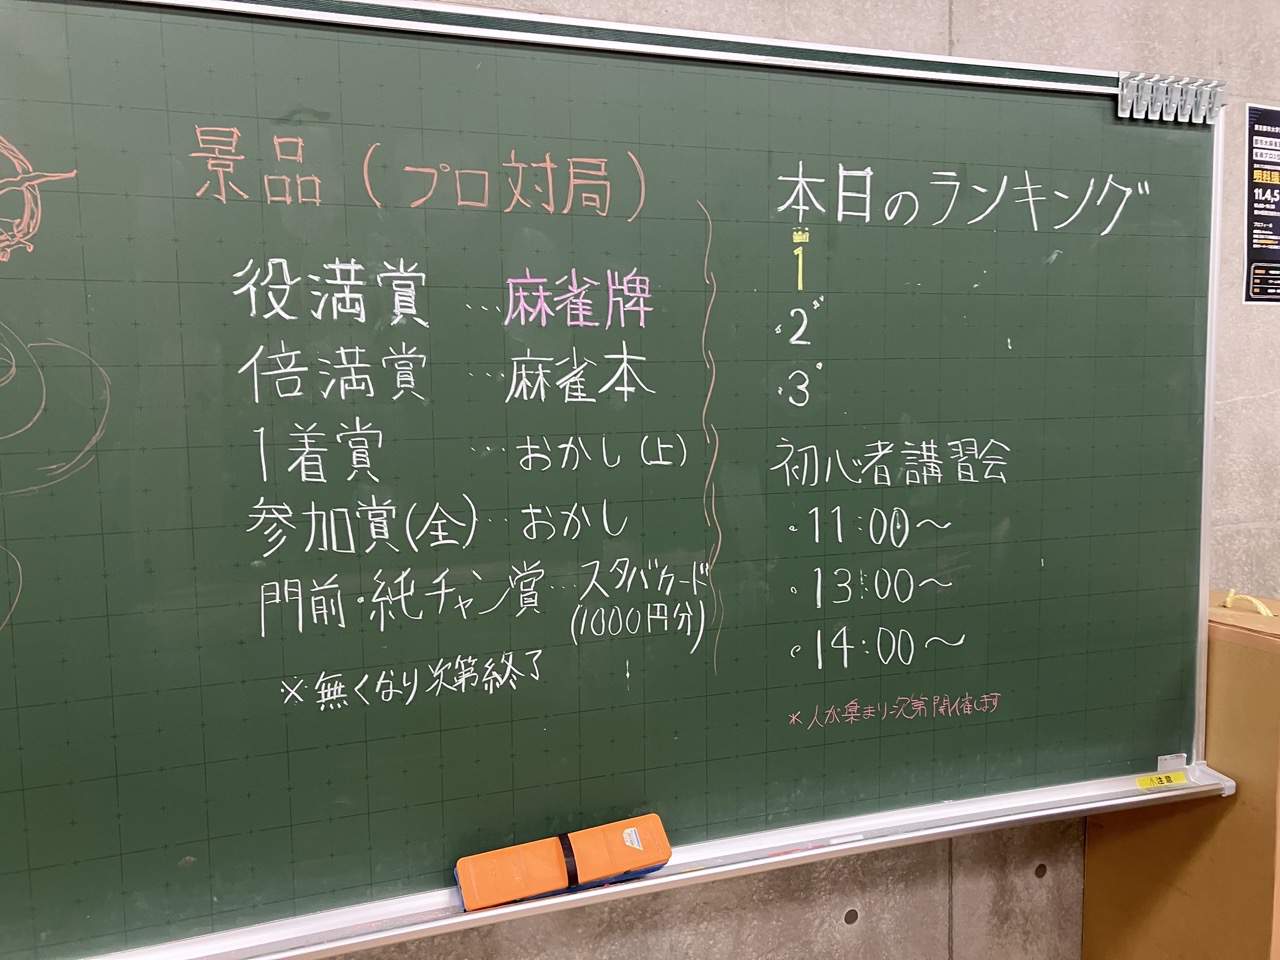 景品(プロ対局)
役満賞 …麻雀牌
倍満賞 …麻雀本
1着賞 …おかし(上)
参加賞(全)…おかし
門前・純チャン賞…スタバカード
(1000円分)
※無くなり次第終了
本日のランキング
1
2
3
初心者講習会
・11:00〜
・13:00〜
・14:00〜
※人が集まり次第開催します
注意
11.4,5